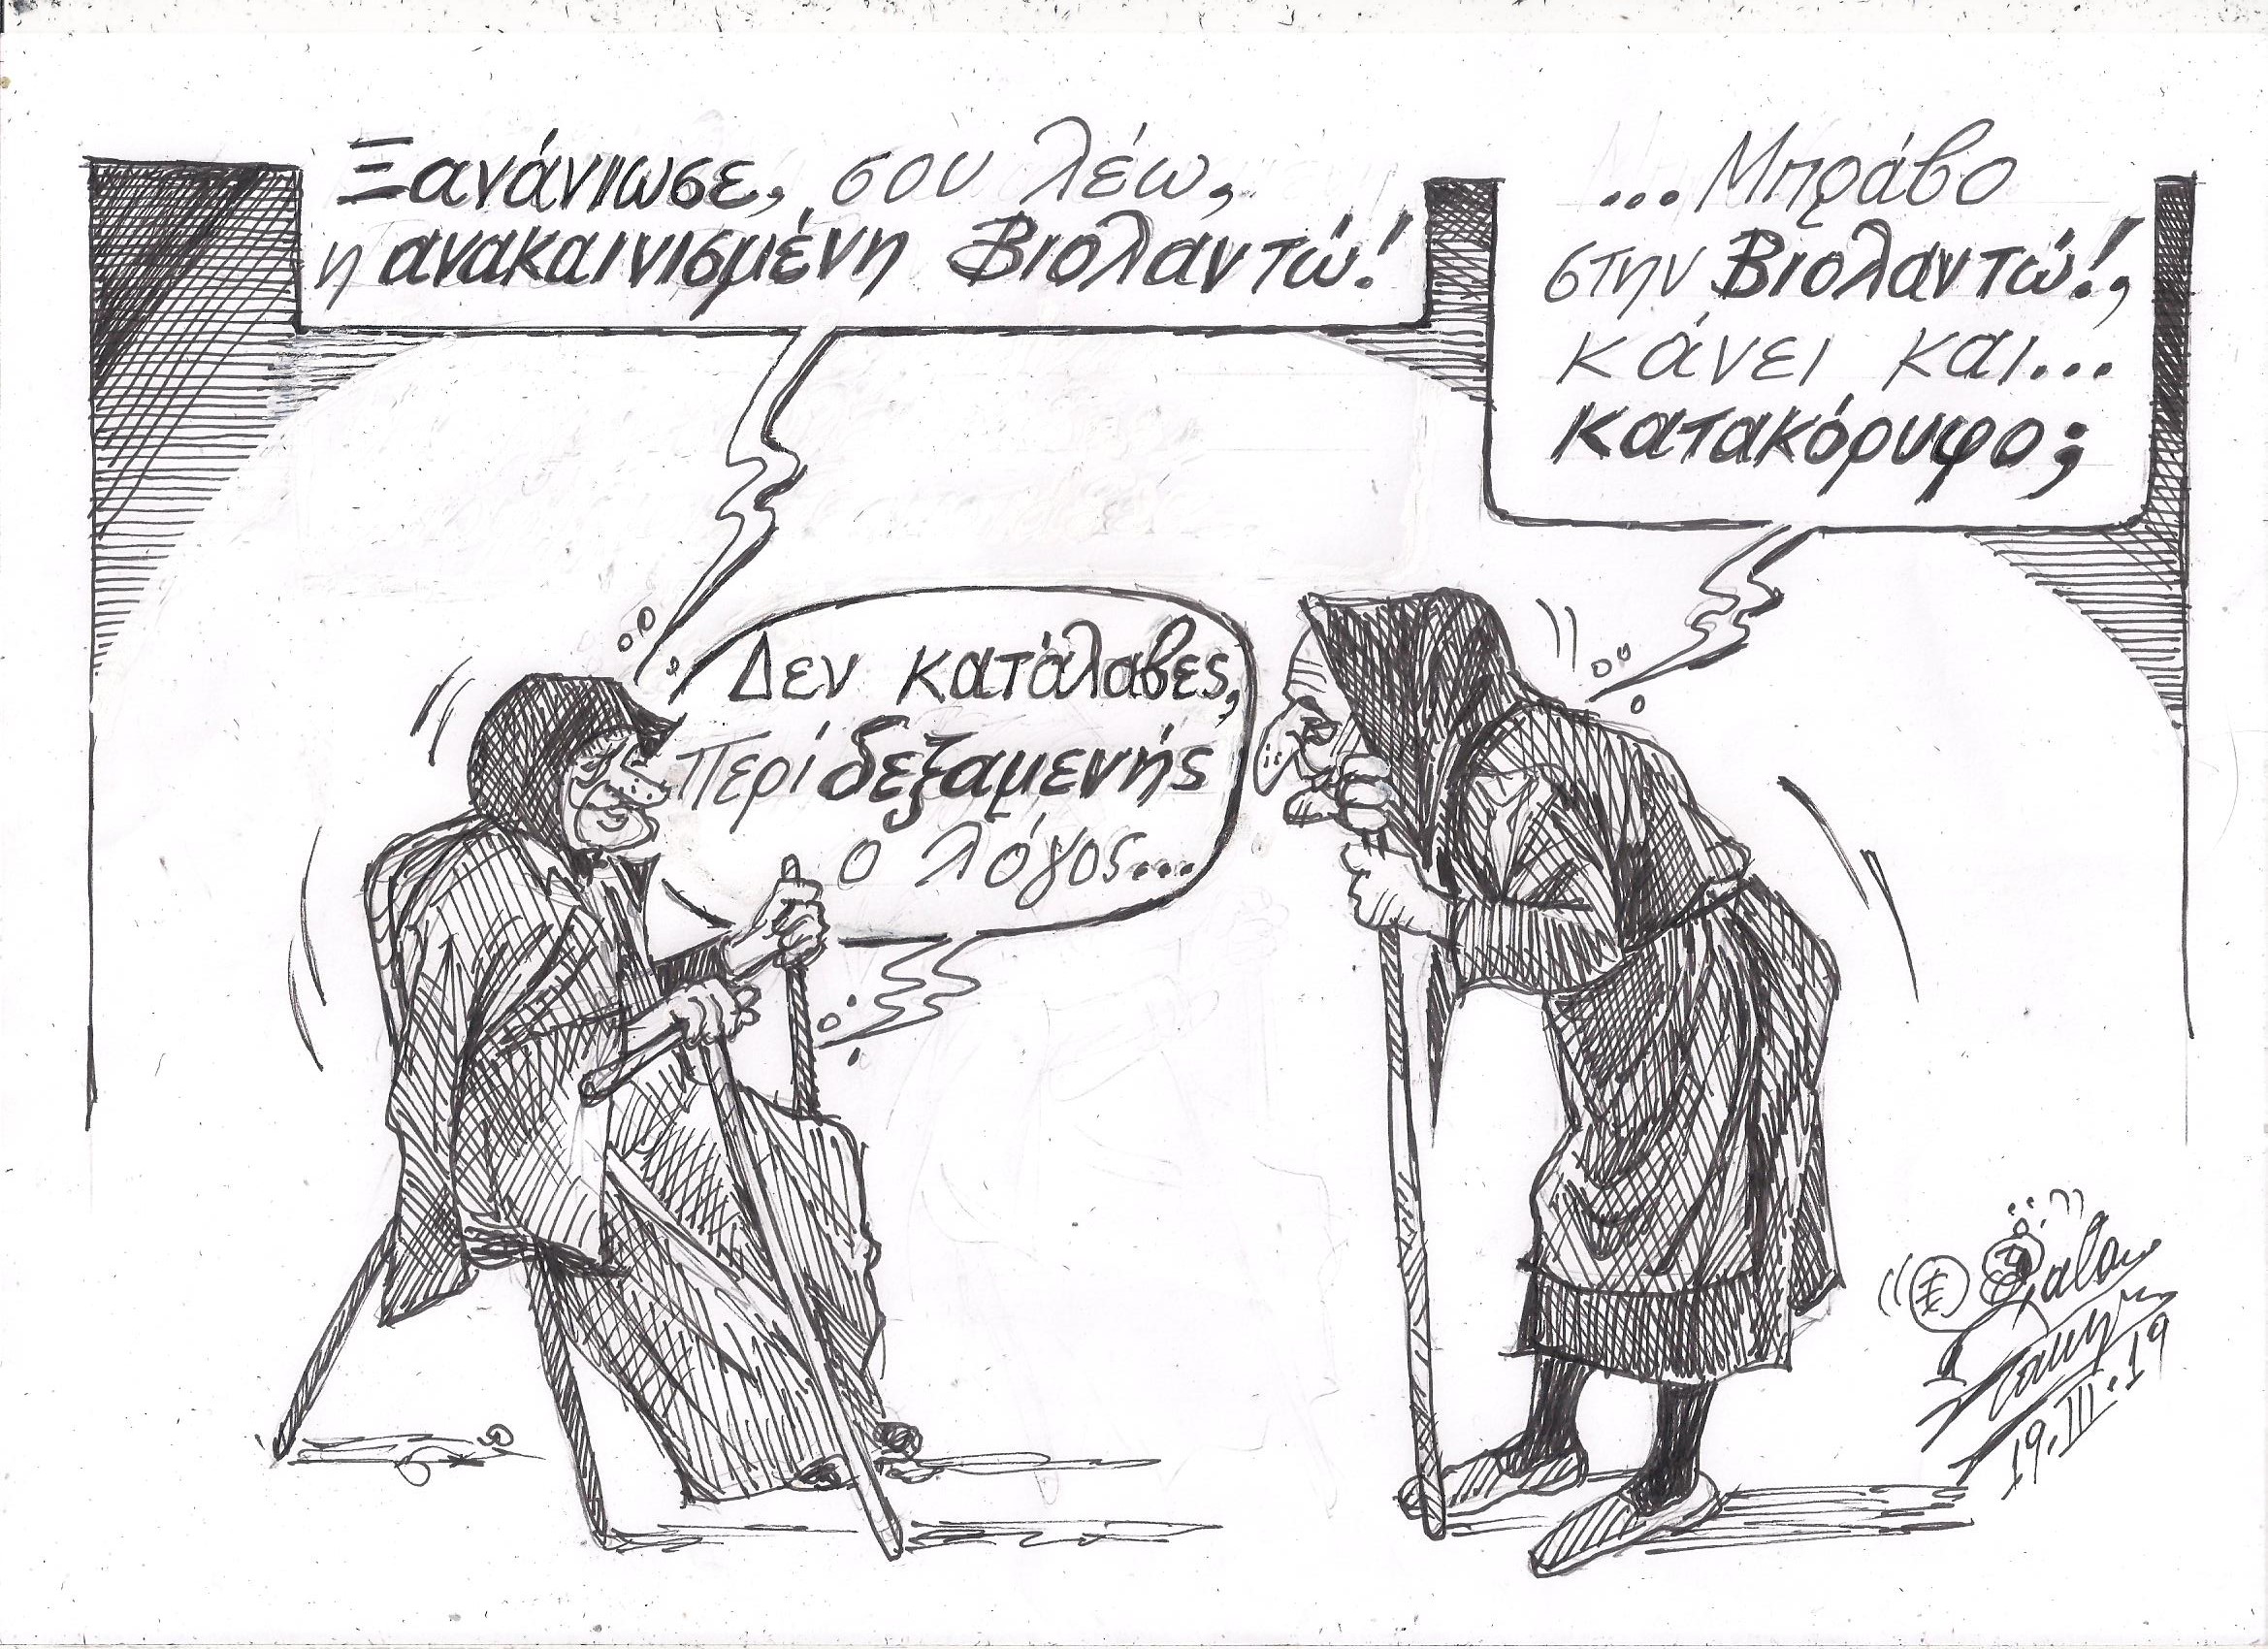 Ξανάνιωσε, σου λέω,
η ανακαινισμένη Βιολαντώ!
...Μπράβο
στην Βιολαντώ!,
κάνει και...
κατακόρυφο;
Δεν κατάλαβες,
περί δεξαμενής
ο λόγος...
19.III.19